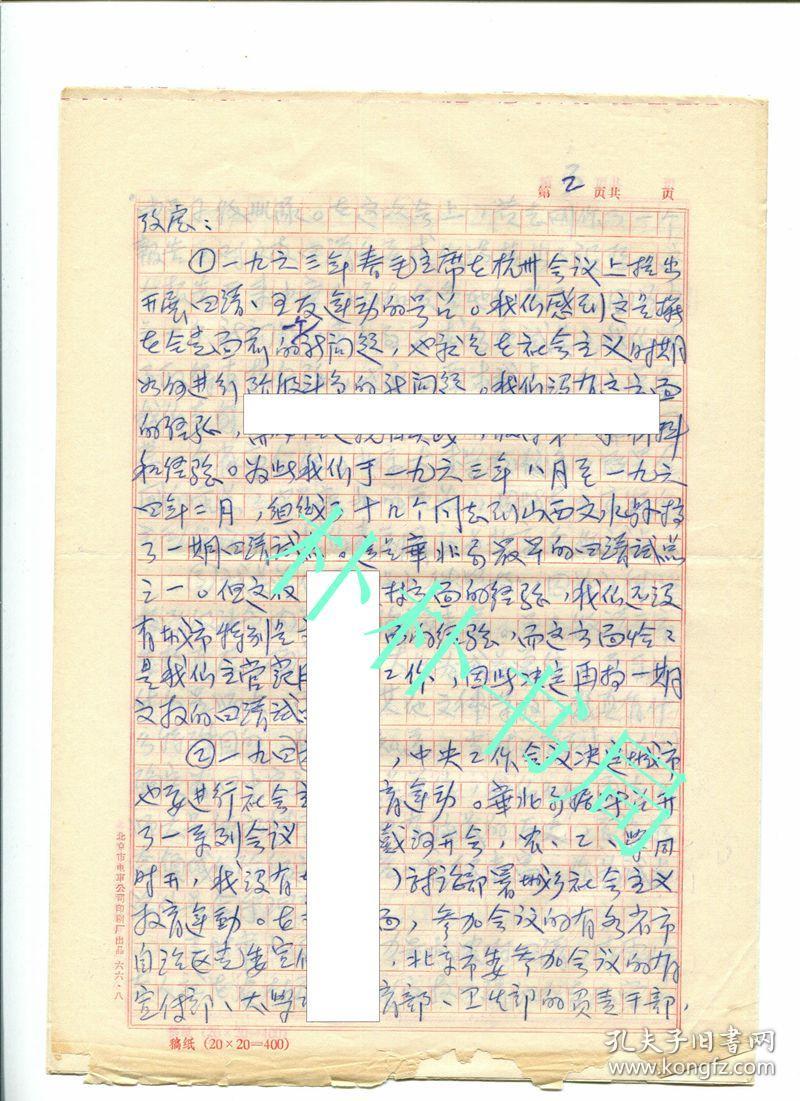 第 2 页共 页
①一九六三年春毛主席在杭州会议上提出
开展四清、五反运动的号召。我们感到这是摆
在全党面前的新问题，也就是在社会主义时期
如何进行阶级斗争的新问题。我们没有这方面
的经验
和经验。为此我们于一九六三年八月至一九六
四年二月，组织二十几个同志到山西文水县搞
了一期四清试 。这是华北局最早的四清试点
之一。但这仅 方面的经验，我们还没
有城市特别是 的经验，而这方面恰恰
是我们主管范 工作，因此决定再搞一期
文教的四清试
②一九 ，中央工作会议决定城市
也要进行社会 育运动。华北局
了一系列会议 戴河开会，农、工、学同
时开，我没有 ）讨论部署城乡社会主义
教育运动。在 面，参加会议的有各省市
自治区党委宣 ，北京市委参加会议的有
宣传部、大学 育部、卫生部的负责干部，
北京市电车公司印刷厂出品 六六·八
稿纸（20×20=400）
林林书局
孔夫子旧书网
www.kongfz.com